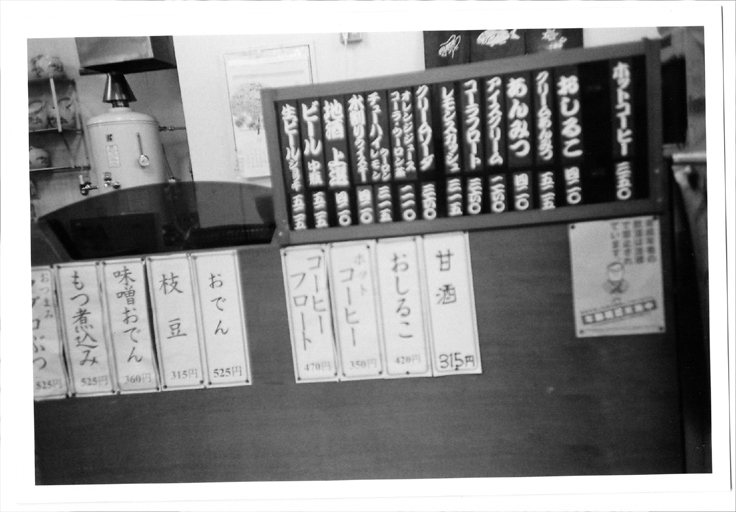 ホットコーヒー 三五〇
おしるこ 四二〇
クリームあんみつ 五二五
あんみつ 四二〇
アイスクリーム 二六〇
コーラフロート
レモンスカッシュ 三一五
クリームソーダ
オレンジジュース
コーラ・ウーロン茶 二一〇
チューハイ レモン ウーロン 三一五
水割りウイスキー 四二〇
地酒 上撰 四二〇
ビール 中瓶 五二五
生ビール 五二五
甘酒 315円
おしるこ 420円
ホットコーヒー 350円
コーヒーフロート 470円
おでん 525円
枝豆 315円
味噌おでん 360円
もつ煮込み 525円
おつまみ
525円
未成年者の
飲酒は法律
で禁止され
ています。